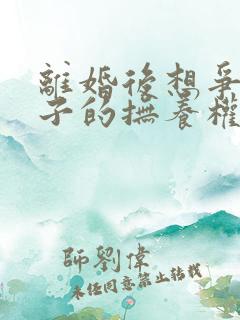 離婚後想爭
子的撫養權
師劉偉
未任同意禁止轉載